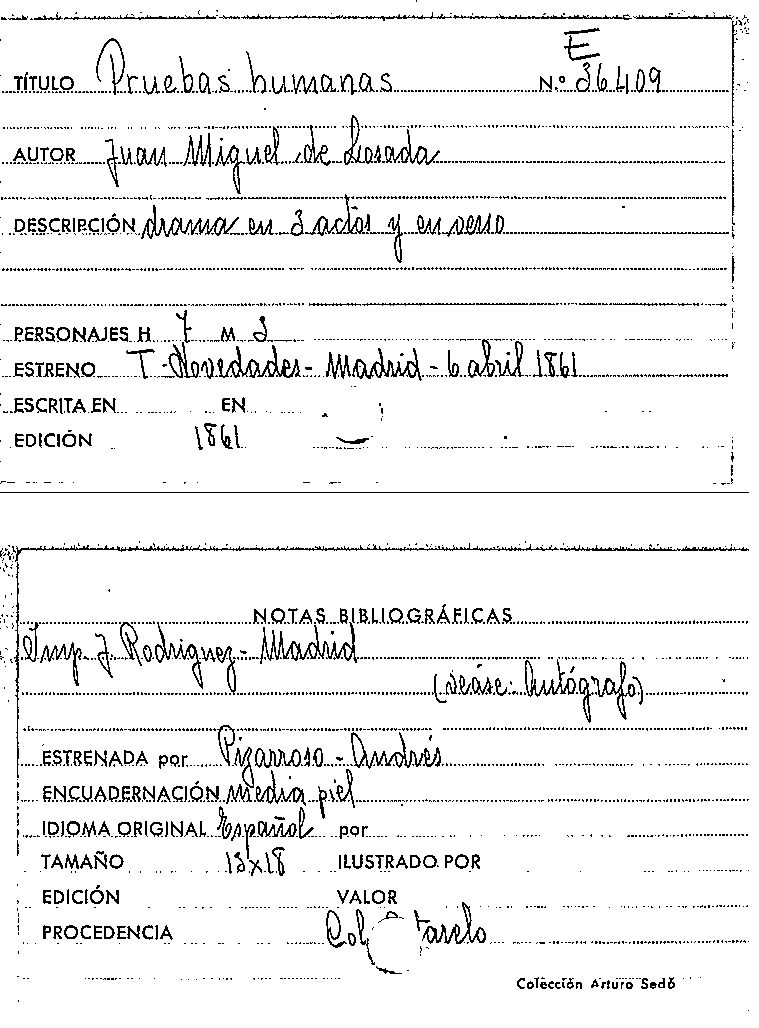 E
TÍTULO Pruebas humanas N.º 36409
AUTOR Juan Miguel de Losada
DESCRIPCIÓN drama en 3 actos y en verso
PERSONAJES H 7 M
ESTRENO T. Novedades - Madrid - 6 abril 1861
ESCRITA EN EN
EDICIÓN 1861
NOTAS BIBLIOGRÁFICAS
Imp. J. Rodriguez - Madrid
(véase: Autógrafo)
ESTRENADA por Pizarroso - Andrés
ENCUADERNACIÓN media piel
IDIOMA ORIGINAL Español por
TAMAÑO ILUSTRADO POR
EDICIÓN VALOR
PROCEDENCIA Col
Colección Arturo Sedó